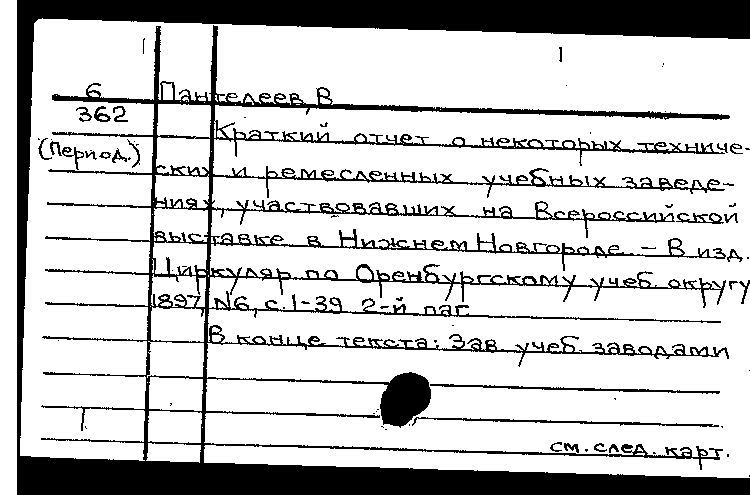 6 Пантелеев, В
362
Краткий отчет о некоторых техниче-
(Период.)
ских и ремесленных учебных заведе-
ниях, участвовавших на Всероссийской
выставке в Нижнем Новгороде. – В изд.
Циркуляр по Оренбургскому учеб. округу
1897, N6, с. 1-39 2-й паг
В конце текста: Зав. учеб. заводами
см. след. карт.